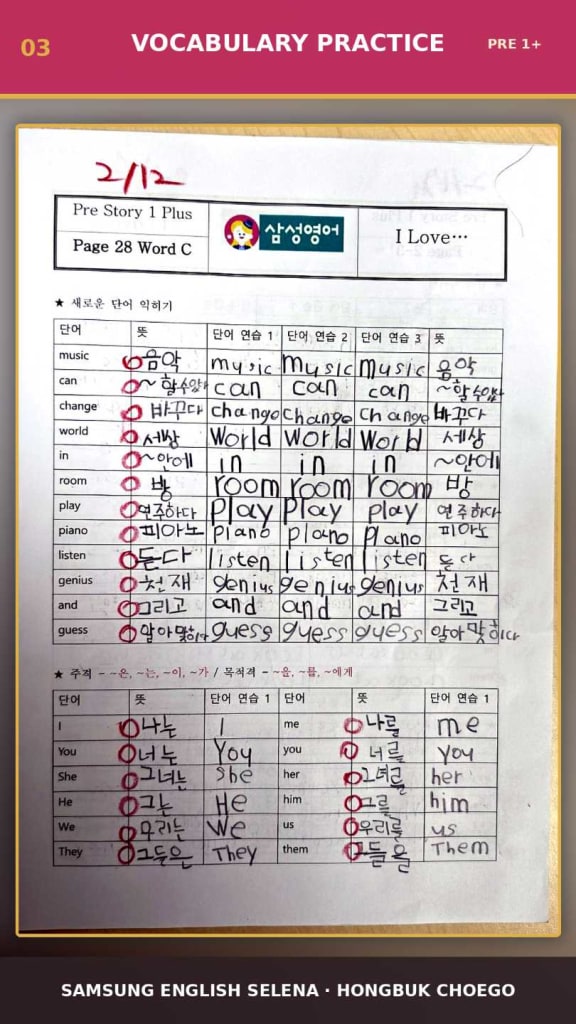 03 VOCABULARY PRACTICE PRE 1+
2/12
Pre Story 1 Plus
Page 28 Word C
삼성영어
I Love⋯
★ 새로운 단어 익히기
단어 뜻 단어 연습 1 단어 연습 2 단어 연습 3 뜻
music 음악 music music music 음악
can ~할수있다 can can can ~할수있다
change 바꾸다 change change change 바꾸다
world 세상 World World World 세상
in ~안에 in in in ~안에
room 방 room room room 방
play 연주하다 play play play 연주하다
piano 피아노 piano piano piano 피아노
listen 듣다 listen listen listen 듣다
genius 천재 genius genius genius 천재
and 그리고 and and and 그리고
guess 알아맞히다 guess guess guess 알아맞히다
★ 주격 - ~은, ~는, ~이, ~가 / 목적격 - ~을, ~를, ~에게
단어 뜻 단어 연습 1 단어 뜻 단어 연습 1
I 나는 I me 나를 me
You 너는 You you 너를 you
She 그녀는 she her 그녀를 her
He 그는 He him 그를 him
We 우리는 We us 우리를 us
They 그들은 They them 그들을 Them
SAMSUNG ENGLISH SELENA · HONGBUK CHOEGO